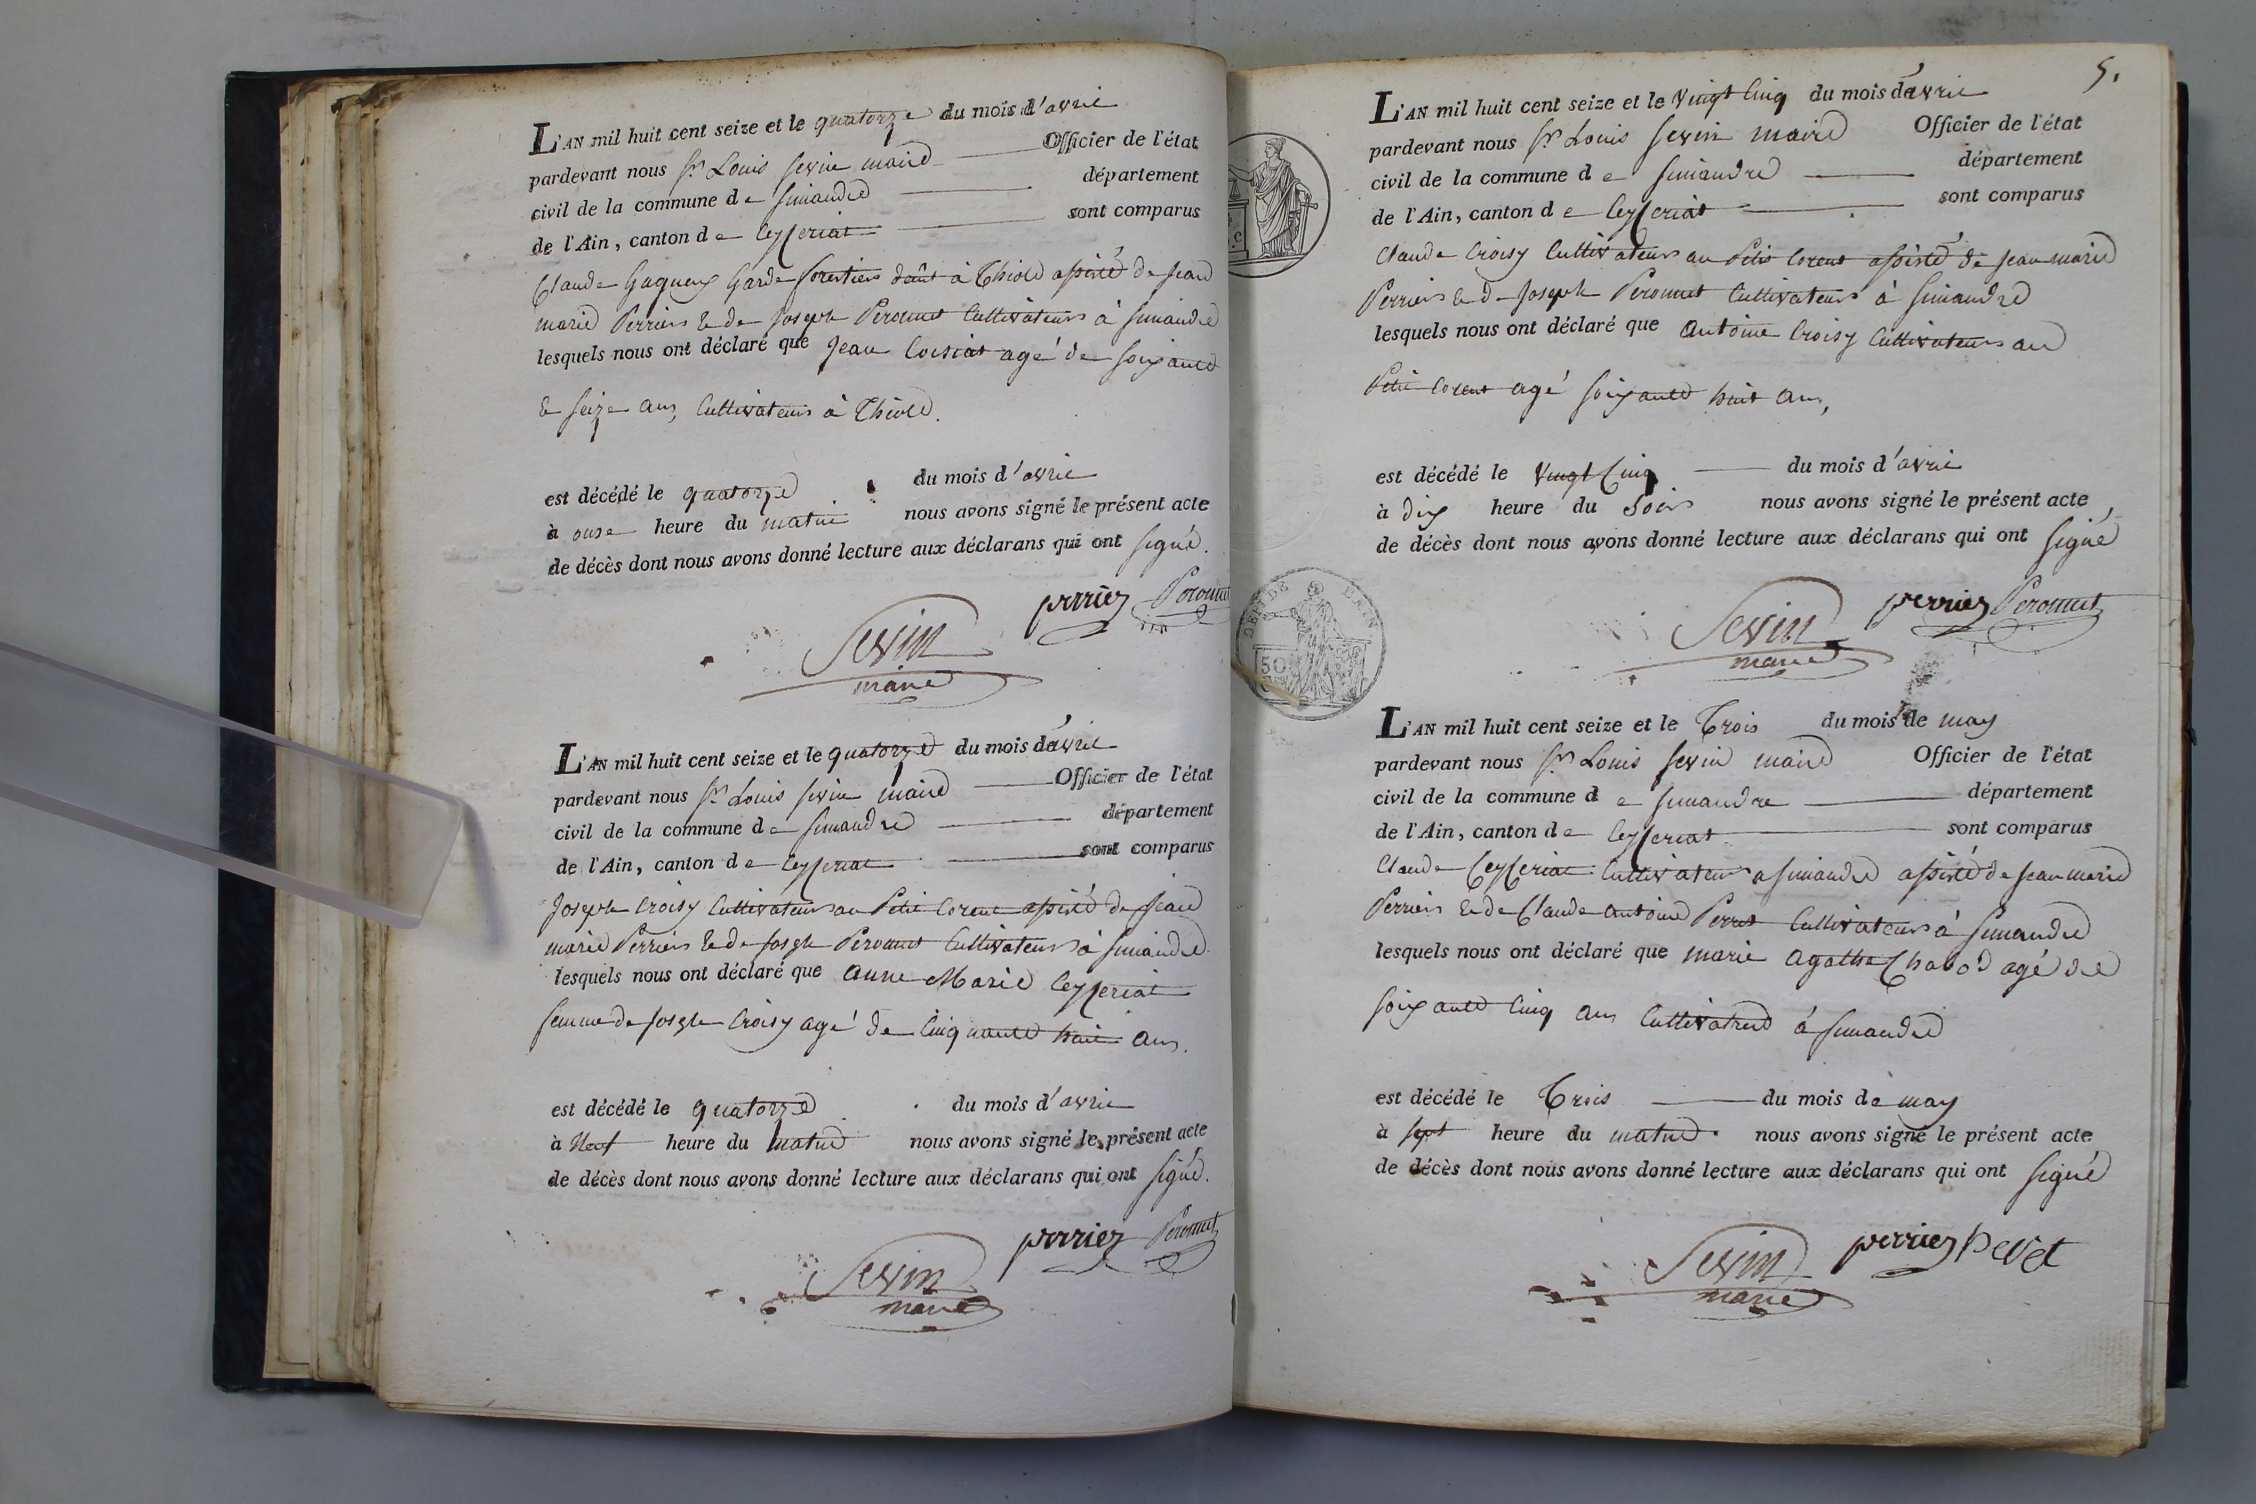 L'AN mil huit cent seize et le quatorze du mois d'avril
pardevant nous Sr Louis Sevin maire Officier de l'état
civil de la commune de Simandre département
de l'Ain, canton de Ceyseriat sont comparus
Claude Gagneux Garde forestier à Thiole assisté de Jean
marie Perrier & de Joseph Peronnet Cultivateurs à Simandre
lesquels nous ont déclaré que Jean agé de soixante
& seize ans, Cultivateur à Thiole.
est décédé le quatorze du mois d'avril
à onse heure du matin nous avons signé le présent acte
de décès dont nous avons donné lecture aux déclarans qui ont signé.
perrier Peronnet
Sevin
maire
L'AN mil huit cent seize et le quatorze du mois d'avril
pardevant nous Sr Louis Sevin maire Officier de l'état
civil de la commune de Simandre département
de l'Ain, canton de Ceyseriat sont comparus
Joseph Croisy Cultivateur au Petit Corent assisté de Jean
marie Perrier & de Josph Peronnet Cultivateurs à Simandre
lesquels nous ont déclaré que anne Marie Ceyseriat
femme de Josph Croisy agé de Cinquante huit ans.
est décédé le quatorze du mois d'avril
à Neuf heure du matin nous avons signé le présent acte
de décès dont nous avons donné lecture aux déclarans qui ont signé.
perrier Peronnet
Sevin
maire
5.
L'AN mil huit cent seize et le Vingt Cinq du mois d'avril
pardevant nous Sr Louis Sevin maire Officier de l'état
civil de la commune de Simandre département
de l'Ain, canton de Ceyseriat sont comparus
Claude Croisy Cultivateur au Petit Corent assisté de Jean marie
Perrier & de Joseph Peronnet Cultivateurs à Simandre
lesquels nous ont déclaré que Antoine Croisy Cultivateur au
Petit Corent agé soixante huit ans,
est décédé le Vingt Cinq du mois d'avril
à dix heure du Soir nous avons signé le présent acte
de décès dont nous avons donné lecture aux déclarans qui ont signé
perrier Peronnet
Sevin
maire
DEB. DE L'AIN
50
L'AN mil huit cent seize et le Trois du mois de may
pardevant nous Sr Louis Sevin maire Officier de l'état
civil de la commune de Simandre département
de l'Ain, canton de Ceyseriat sont comparus
Claude Ceyseriat Cultivateur a Simandre assisté de Jean marie
Perrier & de Claude Antoine Cultivateurs à Simandre
lesquels nous ont déclaré que marie agathe Chabod agé de
soixante Cinq ans Cultivatrice à Simandre
est décédé le Trois du mois de may
à sept heure du matin nous avons signé le présent acte
de décès dont nous avons donné lecture aux déclarans qui ont signé
perrier
Sevin
maire